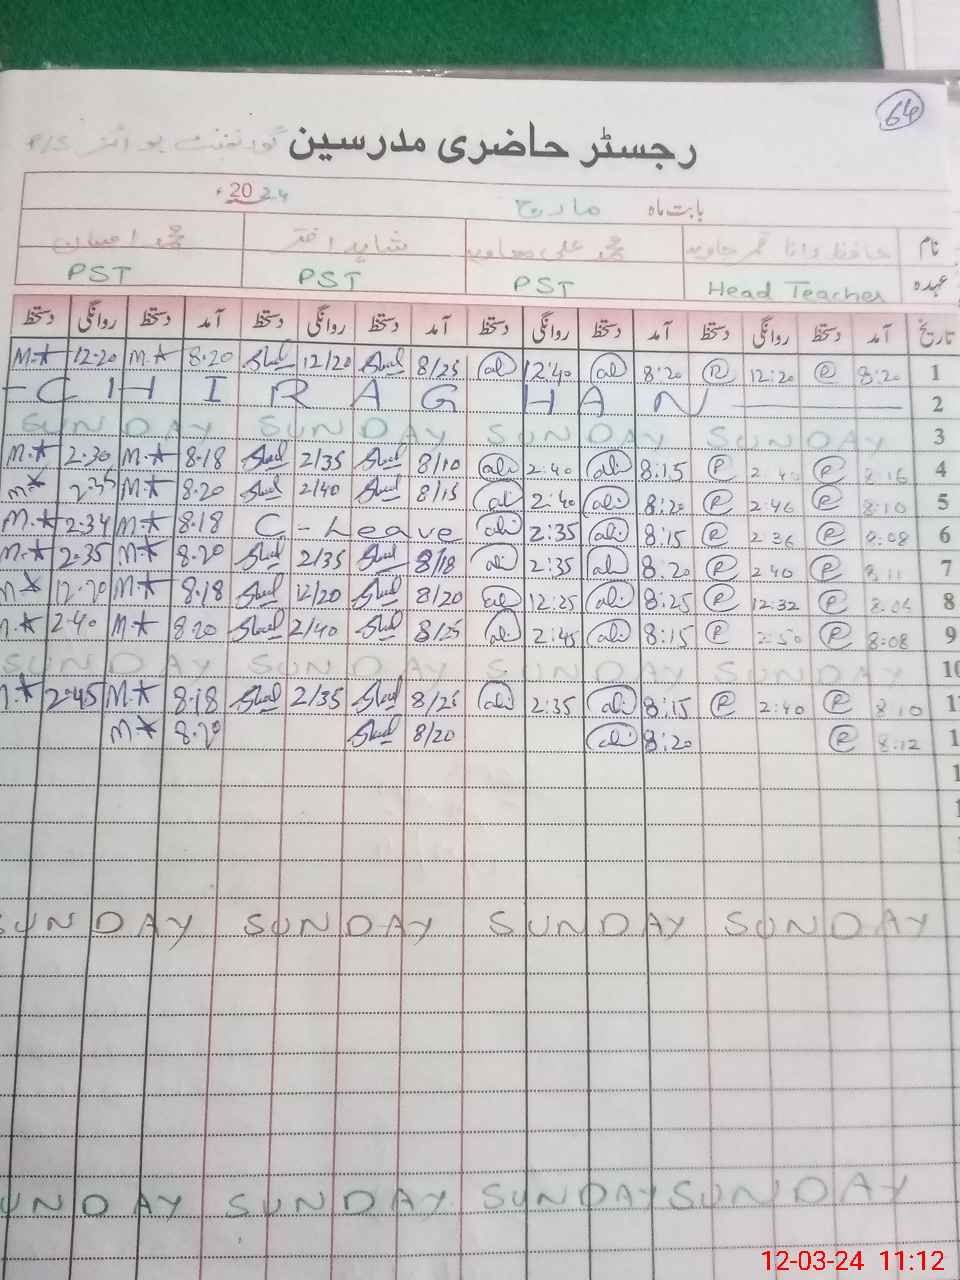 64
رجسٹر حاضری مدرسین گورنمنٹ بوائز P/S
بابت ماہ مارچ 2024ء
نام حافظ رانا قمر جاوید محمد علی معاویہ شاہد اختر محمد احسان
عہدہ Head Teacher PST PST PST
تاریخ آمد دستخط روانگی دستخط آمد دستخط روانگی دستخط آمد دستخط روانگی دستخط آمد دستخط روانگی دستخط
1 8:20 12:20 8:20 ali 12:40 ali 8/25 12/20 8.20 M.★ 12.20 M.★
2 - C H I R A G H A N
3 SUNDAY SUNDAY SUNDAY SUNDAY
4 8:16 2:40 8:15 ali 2:40 ali 8/10 2/35 8.18 M.★ 2.30 M.★
5 8:10 2:46 8:20 ali 2:40 ali 8/15 2/40 8.20 M.★ 2.35 M★
6 8:08 2:36 8:15 ali 2:35 ali C - Leave 8.18 M.★ 2.34 M.★
7 8:11 2:40 8:20 ali 2:35 ali 8/18 2/35 8.20 M.★ 2.35 M.★
8 12:32 8:25 ali 12:25 ali 8/20 12/20 8.18 M.★ 12.20 M★
9 8:08 2:50 8:15 ali 2:45 ali 8/25 2/40 8.20 M.★ 2.40 M.★
10 SUNDAY SUNDAY SUNDAY SUNDAY
1 8:10 2:40 8:15 ali 2:35 ali 8/25 2/35 8.18 M.★ 2.45 M.★
1 8:12 8:20 ali 8/20 8.20 M★
1
1
1
SUNDAY SUNDAY SUNDAY SUNDAY
UNDAY SUNDAY SUNDAY SUNDAY
12-03-24 11:12